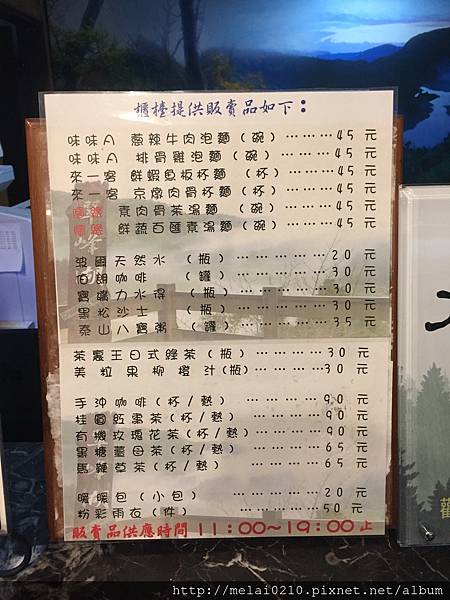 櫃檯提供販賣品如下：
味味A 蔥辣牛肉泡麵（碗）………45 元
味味A 排骨雞泡麵（碗）………45 元
來一客 鮮蝦魚板杯麵（杯）………45 元
來一客 京燉肉骨杯麵（杯）………45 元
素肉骨茶湯麵（碗）………45 元
鮮蔬百匯素湯麵（碗）………45 元
波爾天然水（瓶）………20 元
伯朗咖啡（罐）………30 元
寶礦力水得（瓶）………30 元
黑松沙士（瓶）………30 元
泰山八寶粥（罐）………35 元
茶裏王日式綠茶（瓶）………30 元
美粒果柳橙汁(瓶)………30 元
手沖咖啡(杯/熱)………90 元
桂圓紅棗茶(杯/熱)………90 元
有機玫瑰花茶(杯/熱)………90 元
黑糖薑母茶(杯/熱)………65 元
馬鞭草茶(杯/熱)………65 元
暖暖包（小包）………20 元
粉彩雨衣（件）………50 元
販賣品供應時間 11:00~19:00 止
http://melai0210.pixnet.net/album